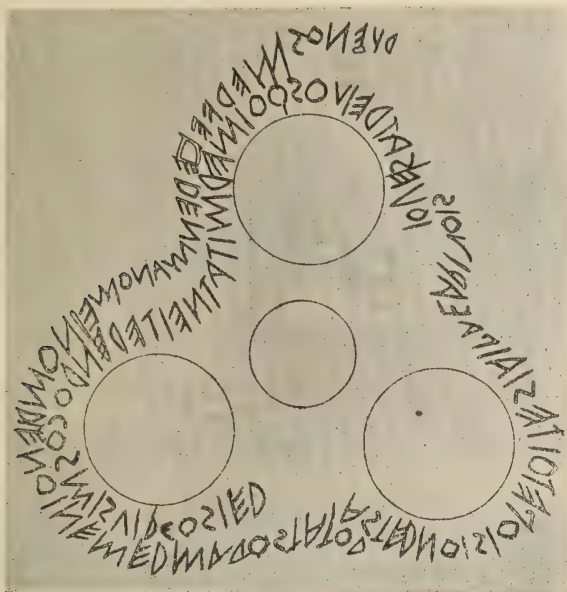 IOVESATDEIVOSQOIMEDMITATNEITEDENDOCOSMISVIRCOSIED
ASTEDNOISIOPETOITESIAIPACARIVOIS
DVENOSMEDFECEDENMANOMEINOMDVENOINEMEDMALOSTATOD